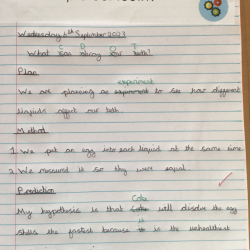 Wednesday 6th September 2023
What can destroy our teeth?
Plan
experiment
We are planning an experiment to see how different
liquids affect our teeth.
Method
1. We put an egg into each liquid at the same time.
2. We measured it so they were equal.
Prediction
Coke
My hypothesis is that will dissolve the egg
it
shells the fastest because is the unhealthiest